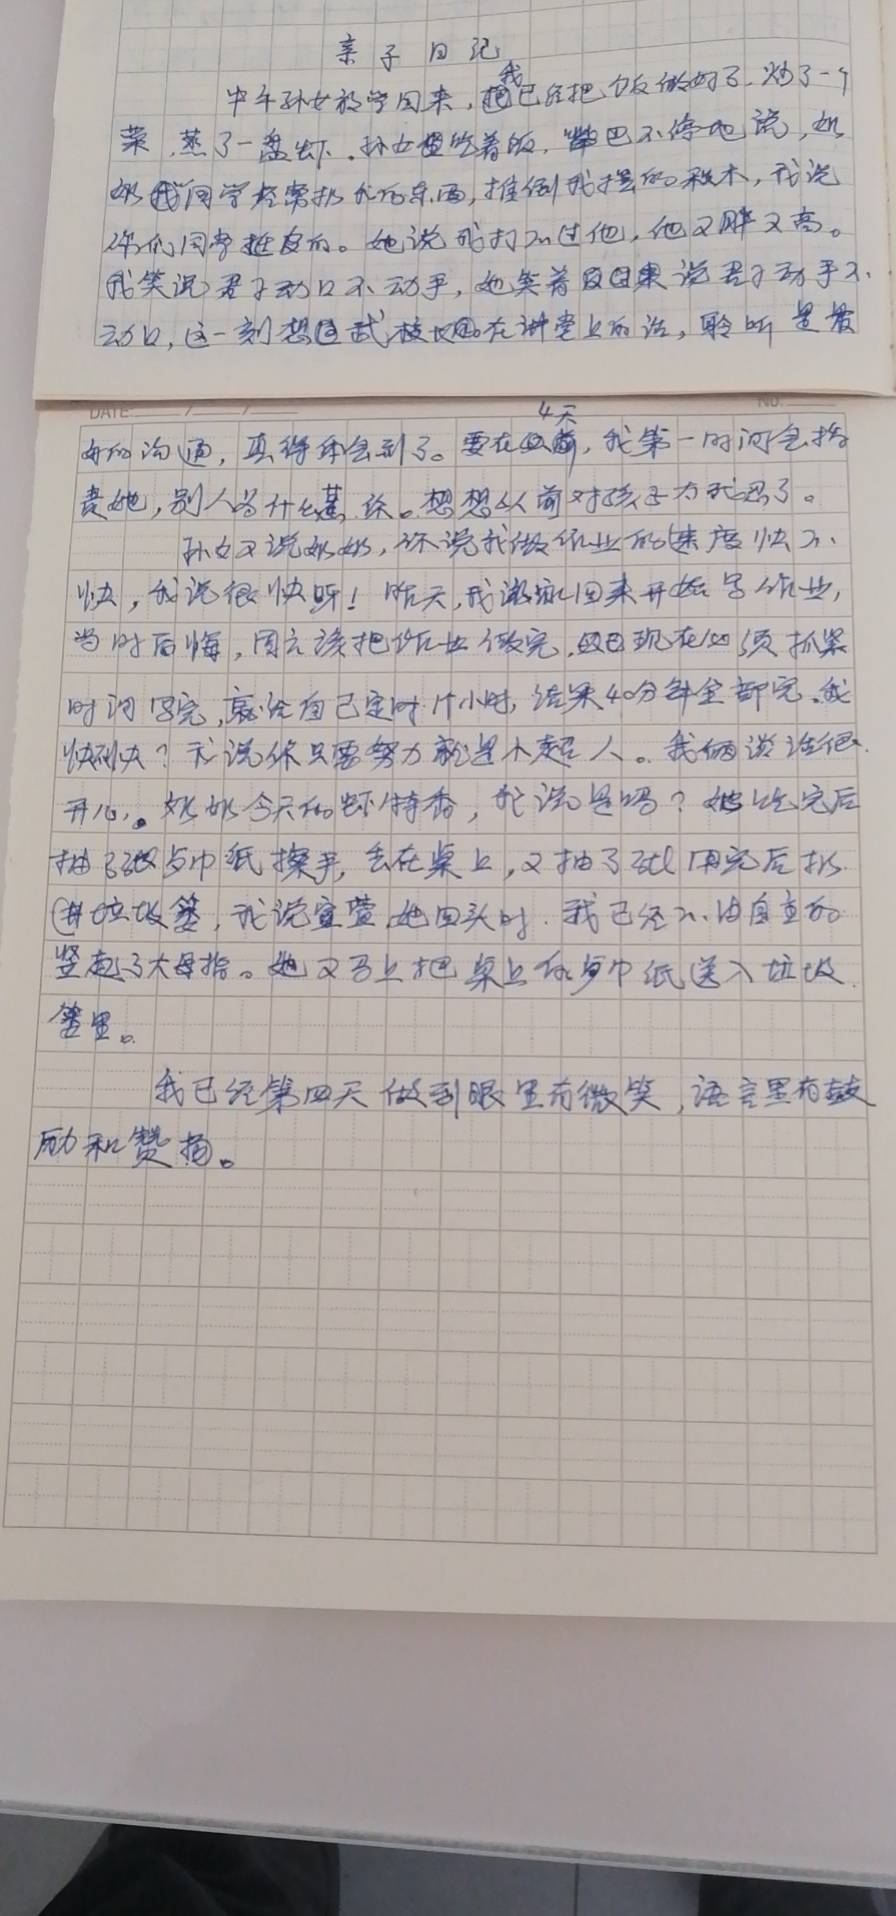 亲子日记
中午孙女放学回来，我已经把饭做好了，炒了一个
菜，蒸了一盘虾。孙女吃着饭，嘴巴不停地说，奶
奶我同学经常扔我的东西，推倒我搭的积木，我说
你们同学挺皮的。她说我打不过他，他又胖又高。
我笑说君子动口不动手，她笑着说君子动手不
动口，这一刻想武校长在讲堂上的话，聆听是最
DATE / / NO.
好的沟通，真得体会到了。要在4天前，我第一时间会指
责她，别人为什么惹你。想想以前对孩子太武断了。
孙女又说奶奶，你说我做作业的速度快不
快，我说很快呀！昨天，我滑冰回来开始写作业，
当时后悔，周六该把作业做完，现在必须抓紧
时间写完，就给自己定时1个小时，结果40分钟全部完。我
快不快？我说你只要努力就是小超人。我俩谈话很
开心。奶奶今天的虾特香，我说是吗？她吃完后
抽了张纱巾纸擦手，丢在桌上，又抽了张用完后扔
进垃圾篓，我说宣萱，她回头时，我已经不由自主的
竖起了大母指。她又马上把桌上的纱巾纸送入垃圾
篓里。
我已经第四天做到眼里有微笑，语言里有鼓
励和赞扬。